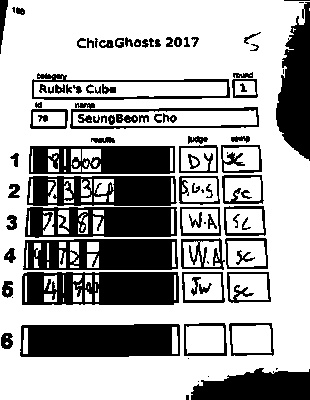 188
ChicaGhosts 2017
5
category
round
Rubik's Cube
1
id
name
78
SeungBeom Cho
results
judge
comp
1 8.000 DY SC
2 7.33 S.G.S SC
3 7.287 W.A SC
4 727 W.A SC
5 4. JW SC
6